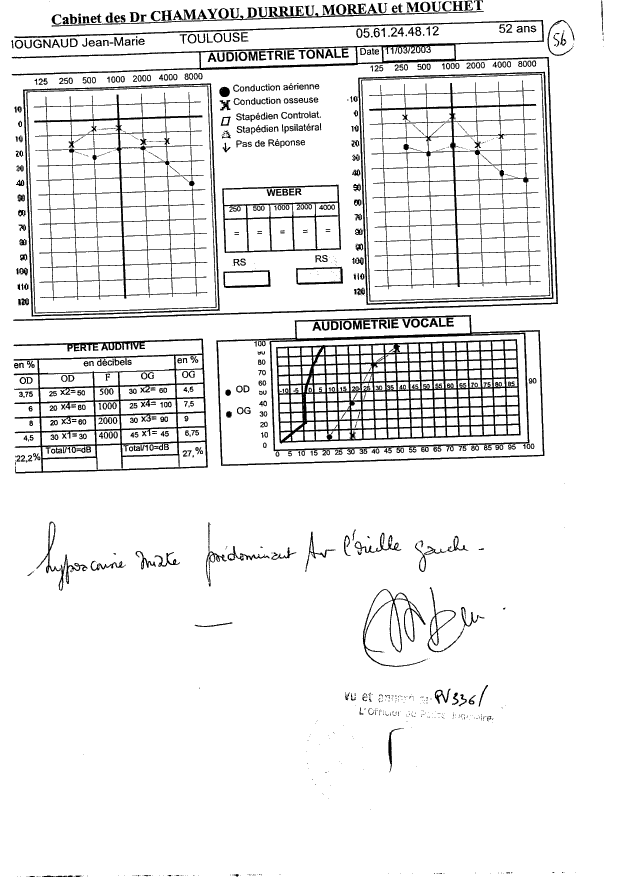 Cabinet des Dr CHAMAYOU, DURRIEU, MOREAU et MOUCHET
IOUGNAUD Jean-Marie TOULOUSE 05.61.24.48.12 52 ans
56
AUDIOMETRIE TONALE Date 11/03/2003
125 250 500 1000 2000 4000 8000
10
0
10
20
30
40
50
60
70
80
90
100
110
120
Conduction aérienne
Conduction osseuse
Stapédien Controlat.
Stapédien Ipsilatéral
Pas de Réponse
WEBER
250 500 1000 2000 4000
= = = = =
RS RS
125 250 500 1000 2000 4000 8000
-10
0
10
20
30
40
50
60
70
80
90
100
110
120
PERTE AUDITIVE
en % en décibels en %
OD OD F OG OG
3,75 25 x2= 50 500 30 x2= 60 4,5
6 20 x4= 80 1000 25 x4= 100 7,5
8 20 x3= 60 2000 30 x3= 90 9
4,5 30 x1= 30 4000 45 x1= 45 6,75
22,2% Total/10=dB Total/10=dB 27,%
AUDIOMETRIE VOCALE
OD
OG
100
90
80
70
60
50
40
30
20
10
0
-10 -5 0 5 10 15 20 25 30 35 40 45 50 55 60 65 70 75 80 85 90 95
90
0 5 10 15 20 25 30 35 40 45 50 55 60 65 70 75 80 85 90 95 100
hypoacousie mixte prédominant sur l'oreille gauche -
Vu et annexé au PV336/
L'Officier de Police Judiciaire